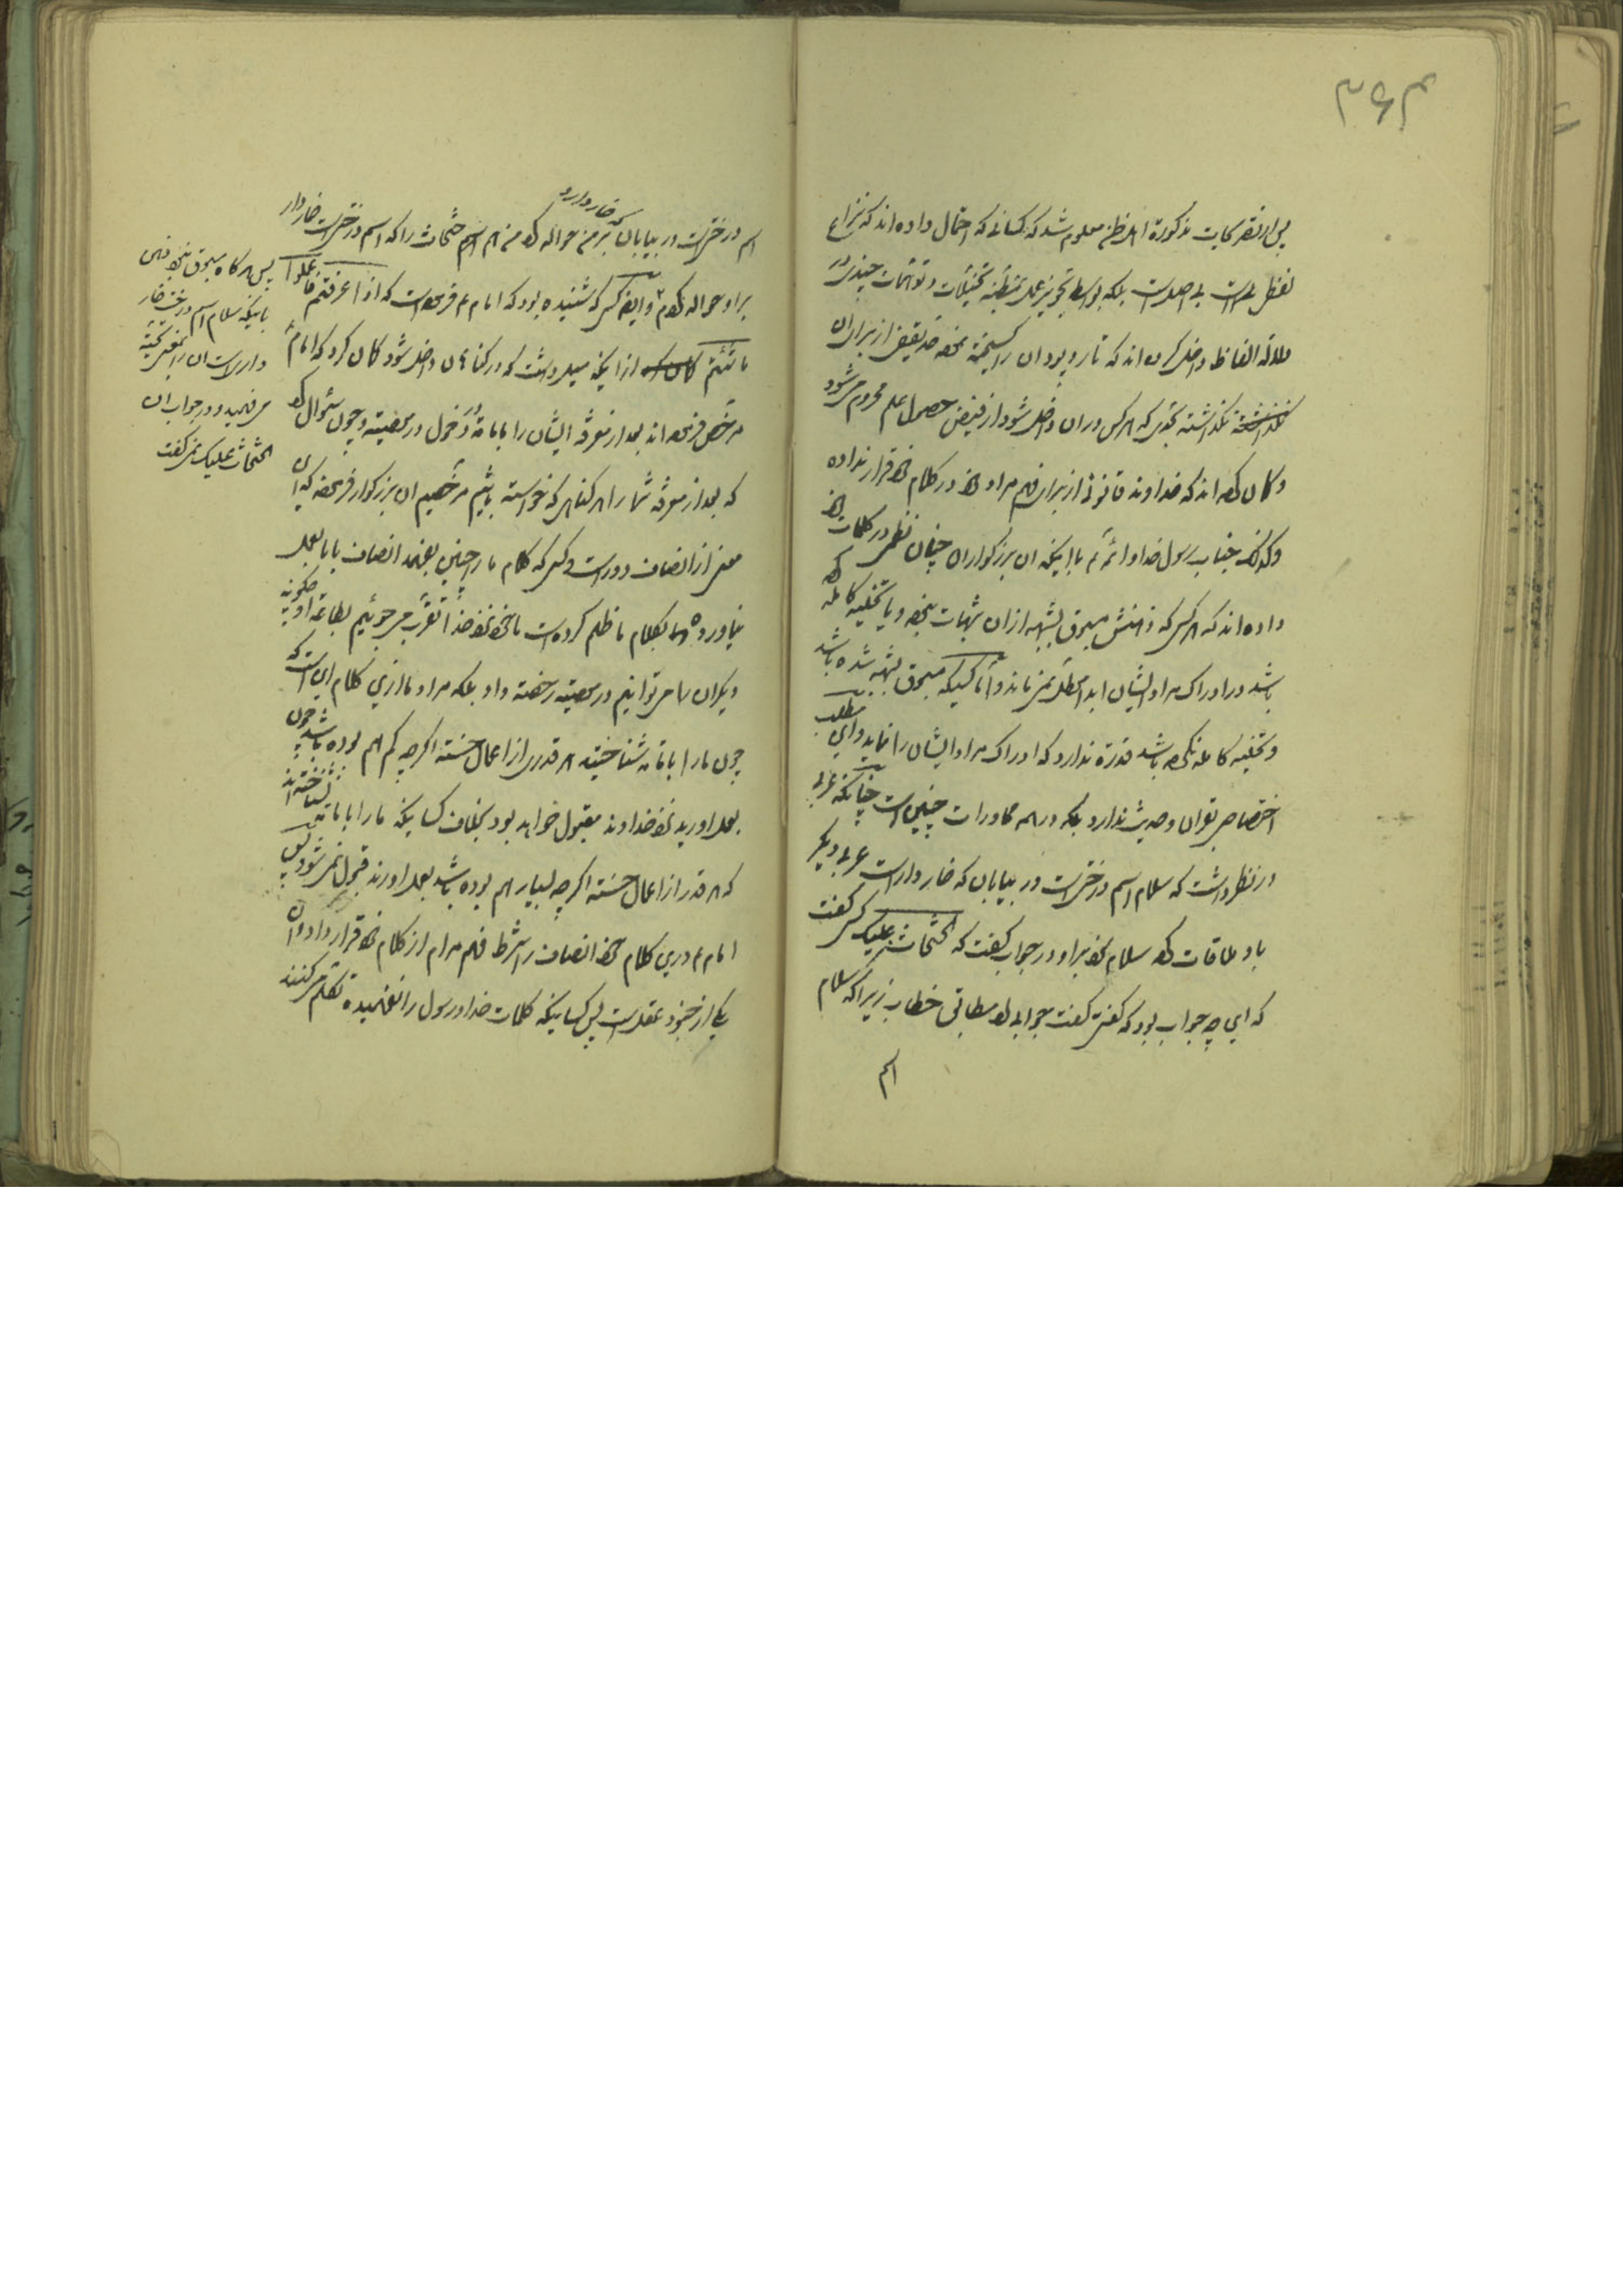 ۳۶۳
پس از تصریحات مذکوره اهل ظن معلوم شد که کسانی که احتمال داده اند که نزاع
لفظی است بی اصل است بلکه بواسطه تجویز عمل بمظنه تخییلات و توهمات چندی در
دلالة الفاظ داخل کرده اند که تار و پود آن را گسیخته نحو صد یقین از برای آن
نگذاشته بحدی که هر کس در آن داخل شود از فیض حصول علم محروم می شود
و گمان کرده اند که خداوند قانونی از برای فهم مراد خود در کلام خود قرار نداده
و کذلک جناب رسول خدا و ائمه با اینکه آن بزرگواران چنان نظمی در کلمات خود
داده اند که هر کس که ذهنش مسبوق بشبهه از آن شبهات نبوده و یا تخلیه کامله کرده
باشد در ادراک مراد ایشان ابدا معطل نمی ماند و اما کسیکه مسبوق بشبهه شده باشد
و تخلیه کامله نکرده باشد قدرة ندارد که ادراک مراد ایشان را نماید و این مطلب
اختصاصی بقران و حدیث ندارد بلکه در همه محاورات چنین است چنانکه عربی
در نظر داشت که سلام اسم درختی است در بیابان که خار دار است عربی دیگر
باو ملاقات کرد سلام کرد بر او در جواب گفت که الجثجاث علیک کسی گفت
که این چه جواب بود که گفتی گفت جوابی بود مطابق خطاب زیرا که سلام
اسم
اسم درختی است در بیابان که خار دارد بر من حواله کرد من هم اسم جثجاث را که اسم درختی است خاردار
بر او حواله کردم و ایضا کسی که شنیده بود که امام ع فرموده است که اذا عرفتم فاعملوا
ما شئتم از اینکه میل داشت که در گناهان داخل شود گمان کرد که امام
مرخص فرموده اند بعد از معرفة ایشان را بامامة دخول در معصیة و چون سئوال کرد
که بعد از معرفة شما را هر گناهی که خواسته باشیم مرخصیم آن بزرگوار فرموده که این
معنی از انصاف دور است و کسی که کلام ما را چنین بفهمد انصاف با ما بعمل
نیاورده و بکلام ما ظلم کرده است ما خود نزد خدا تقرب می جوئیم بطاعة او چگونه
دیگران را می توانیم در معصیة رخصة داد بلکه مراد ما از این کلام این است که
چون ما را بامامة شناختید هر قدری از اعمال حسنه اگر چه کم هم بوده باشد چون
بعمل اورید نزد خداوند مقبول خواهد بود بخلاف کسانیکه ما را بامامة نشناخته اند
که هر قدر از اعمال حسنه اگر چه بسیار هم بوده باشد بعمل اورند قبول نمی شود پس
امام ع در این کلام خود انصاف را شرط فهم مرام از کلام خود قرار داد و آن
یکی از جنود عقل است پس کسانیکه کلمات خدا و رسول را نفهمیده تکلم می کنند
پس هر گاه مسبوق نبود ذهن
باینکه سلام اسم درخت خار
دار است آن را بمعنی تحیة
می فهمید و در جواب آن
الجثجاث علیک نمی گفت